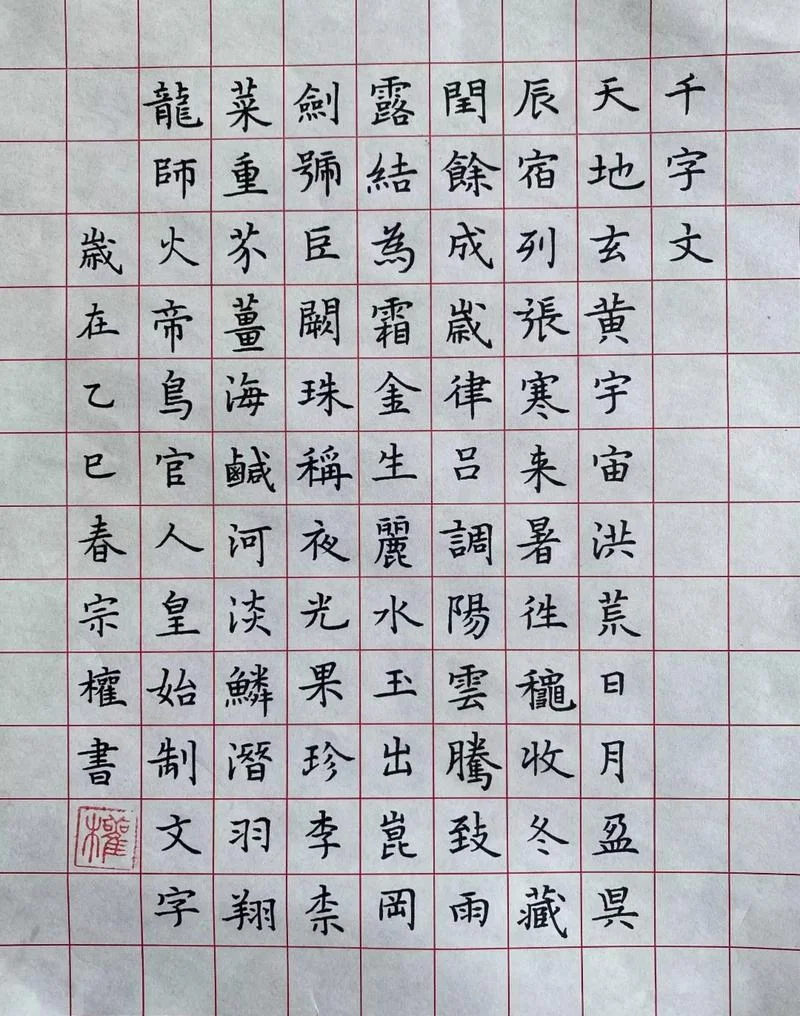 千字文
天地玄黄宇宙洪荒日月盈昃
辰宿列張寒来暑徃龝收冬藏
閏餘成歲律吕調陽雲騰致雨
露結為霜金生麗水玉出崑岡
劍號臣闕珠稱夜光果珍李柰
菜重芥薑海鹹河淡鱗潛羽翔
龍師火帝鳥官人皇始制文字
歲在乙巳春宗權書
權